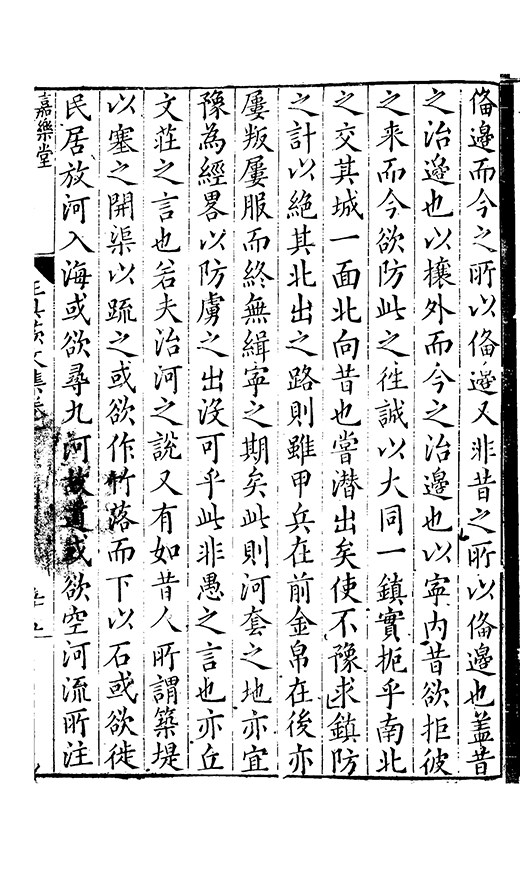 俻邉而今之所以俻邉又非昔之所以俻邉也盖昔
之治邉也以攘外而今之治邉也以寕内昔欲拒彼
之来而今欲防此之徃誠以大同一鎮實扼乎南北
之交其城一面北向昔也嘗潜出矣使不豫求鎮防
之計以絶其北出之路則雖甲兵在前金帛在後亦
屢叛屢服而終無緝寕之期矣此則河套之地亦宜
豫為經畧以防虜之出没可乎此非愚之言也亦丘
文荘之言也若夫治河之說又有如昔人所謂築堤
以塞之開渠以疏之或欲作竹落而下以石或欲徙
民居放河入海或欲尋九河故道或欲空河流所注
嘉樂堂
文集卷